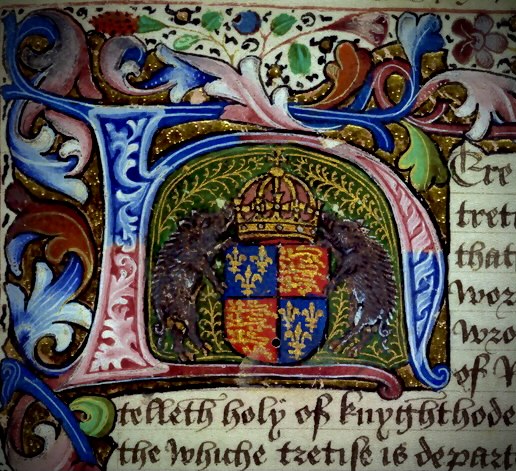 HEre
treti
that
wor
wro
of
telleth holy of knyghthode
the whiche tretise is depart